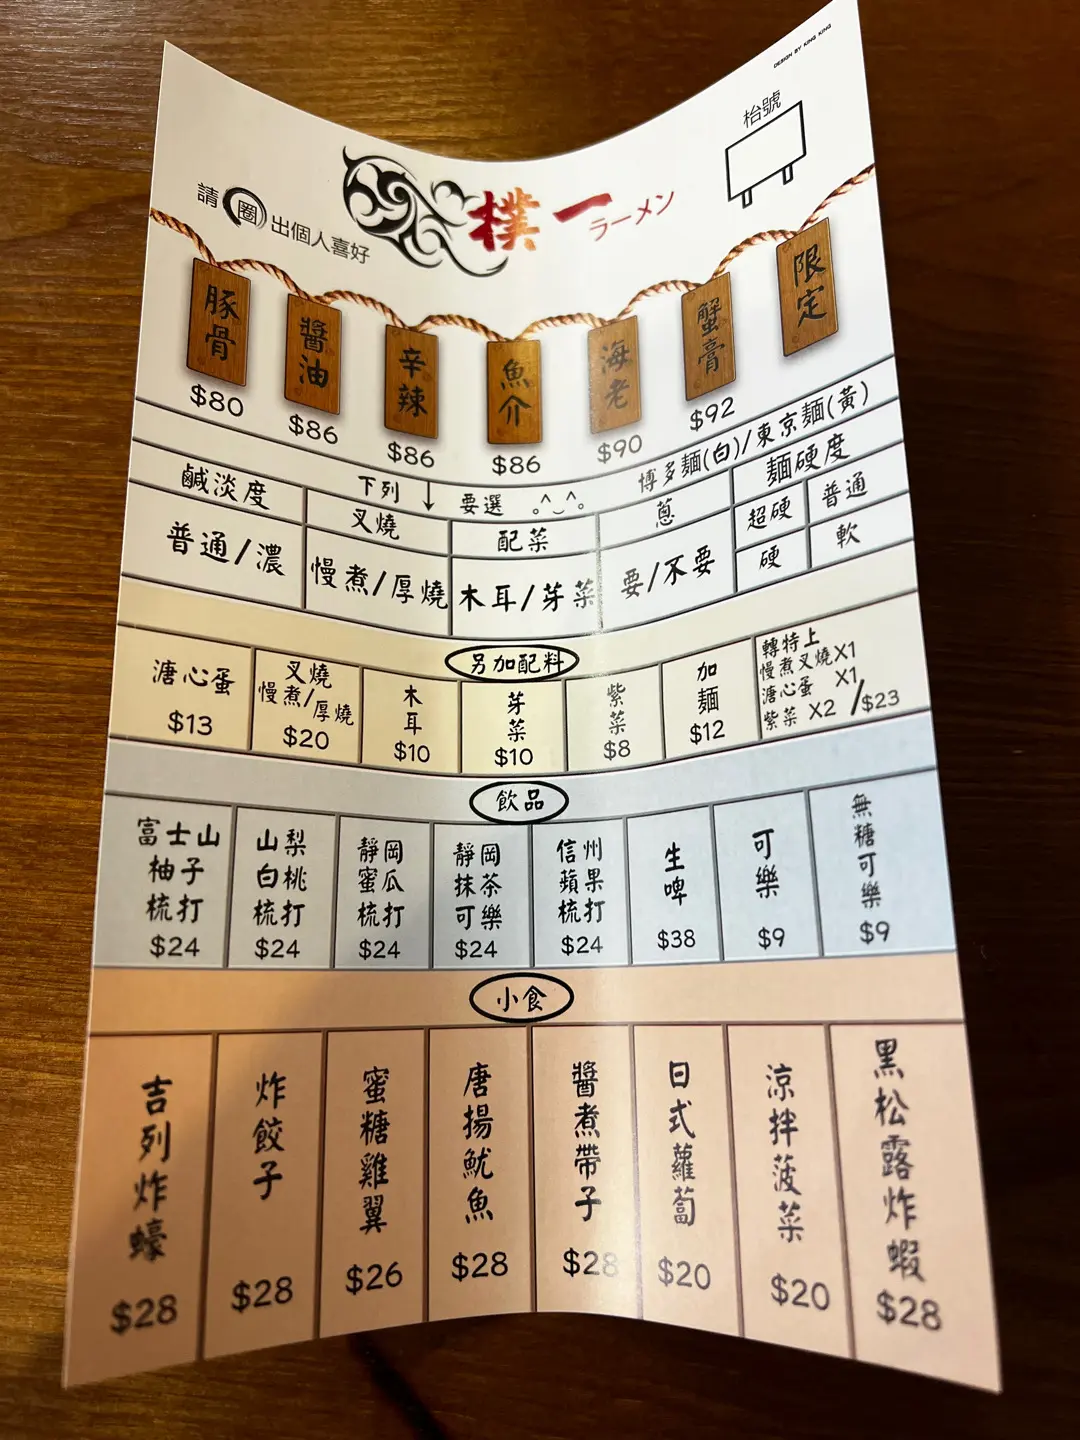 DESIGN BY KING KING
枱號
請圈出個人喜好
樸一
ラーメン
豚骨
$80
醬油
$86
辛辣
$86
魚介
$86
海老
$90
蟹膏
$92
限定
博多麵(白)/東京麵(黃)
下列↓要選 ^_^
鹹淡度
普通/濃
叉燒
慢煮/厚燒
配菜
木耳/芽菜
蔥
要/不要
麵硬度
超硬
普通
硬
軟
另加配料
溏心蛋
$13
叉燒
慢煮/厚燒
$20
木耳
$10
芽菜
$10
紫菜
$8
加麵
$12
轉特上
慢煮叉燒X1
溏心蛋 X1
紫菜 X2 /$23
飲品
富士山
柚子
梳打
$24
山梨
白桃
梳打
$24
靜岡
蜜瓜
梳打
$24
靜岡
抹茶
可樂
$24
信州
蘋果
梳打
$24
生啤
$38
可樂
$9
無糖可樂
$9
小食
吉列炸蠔
$28
炸餃子
$28
蜜糖雞翼
$26
唐揚魷魚
$28
醬煮帶子
$28
日式蘿蔔
$20
涼拌菠菜
$20
黑松露炸蝦
$28